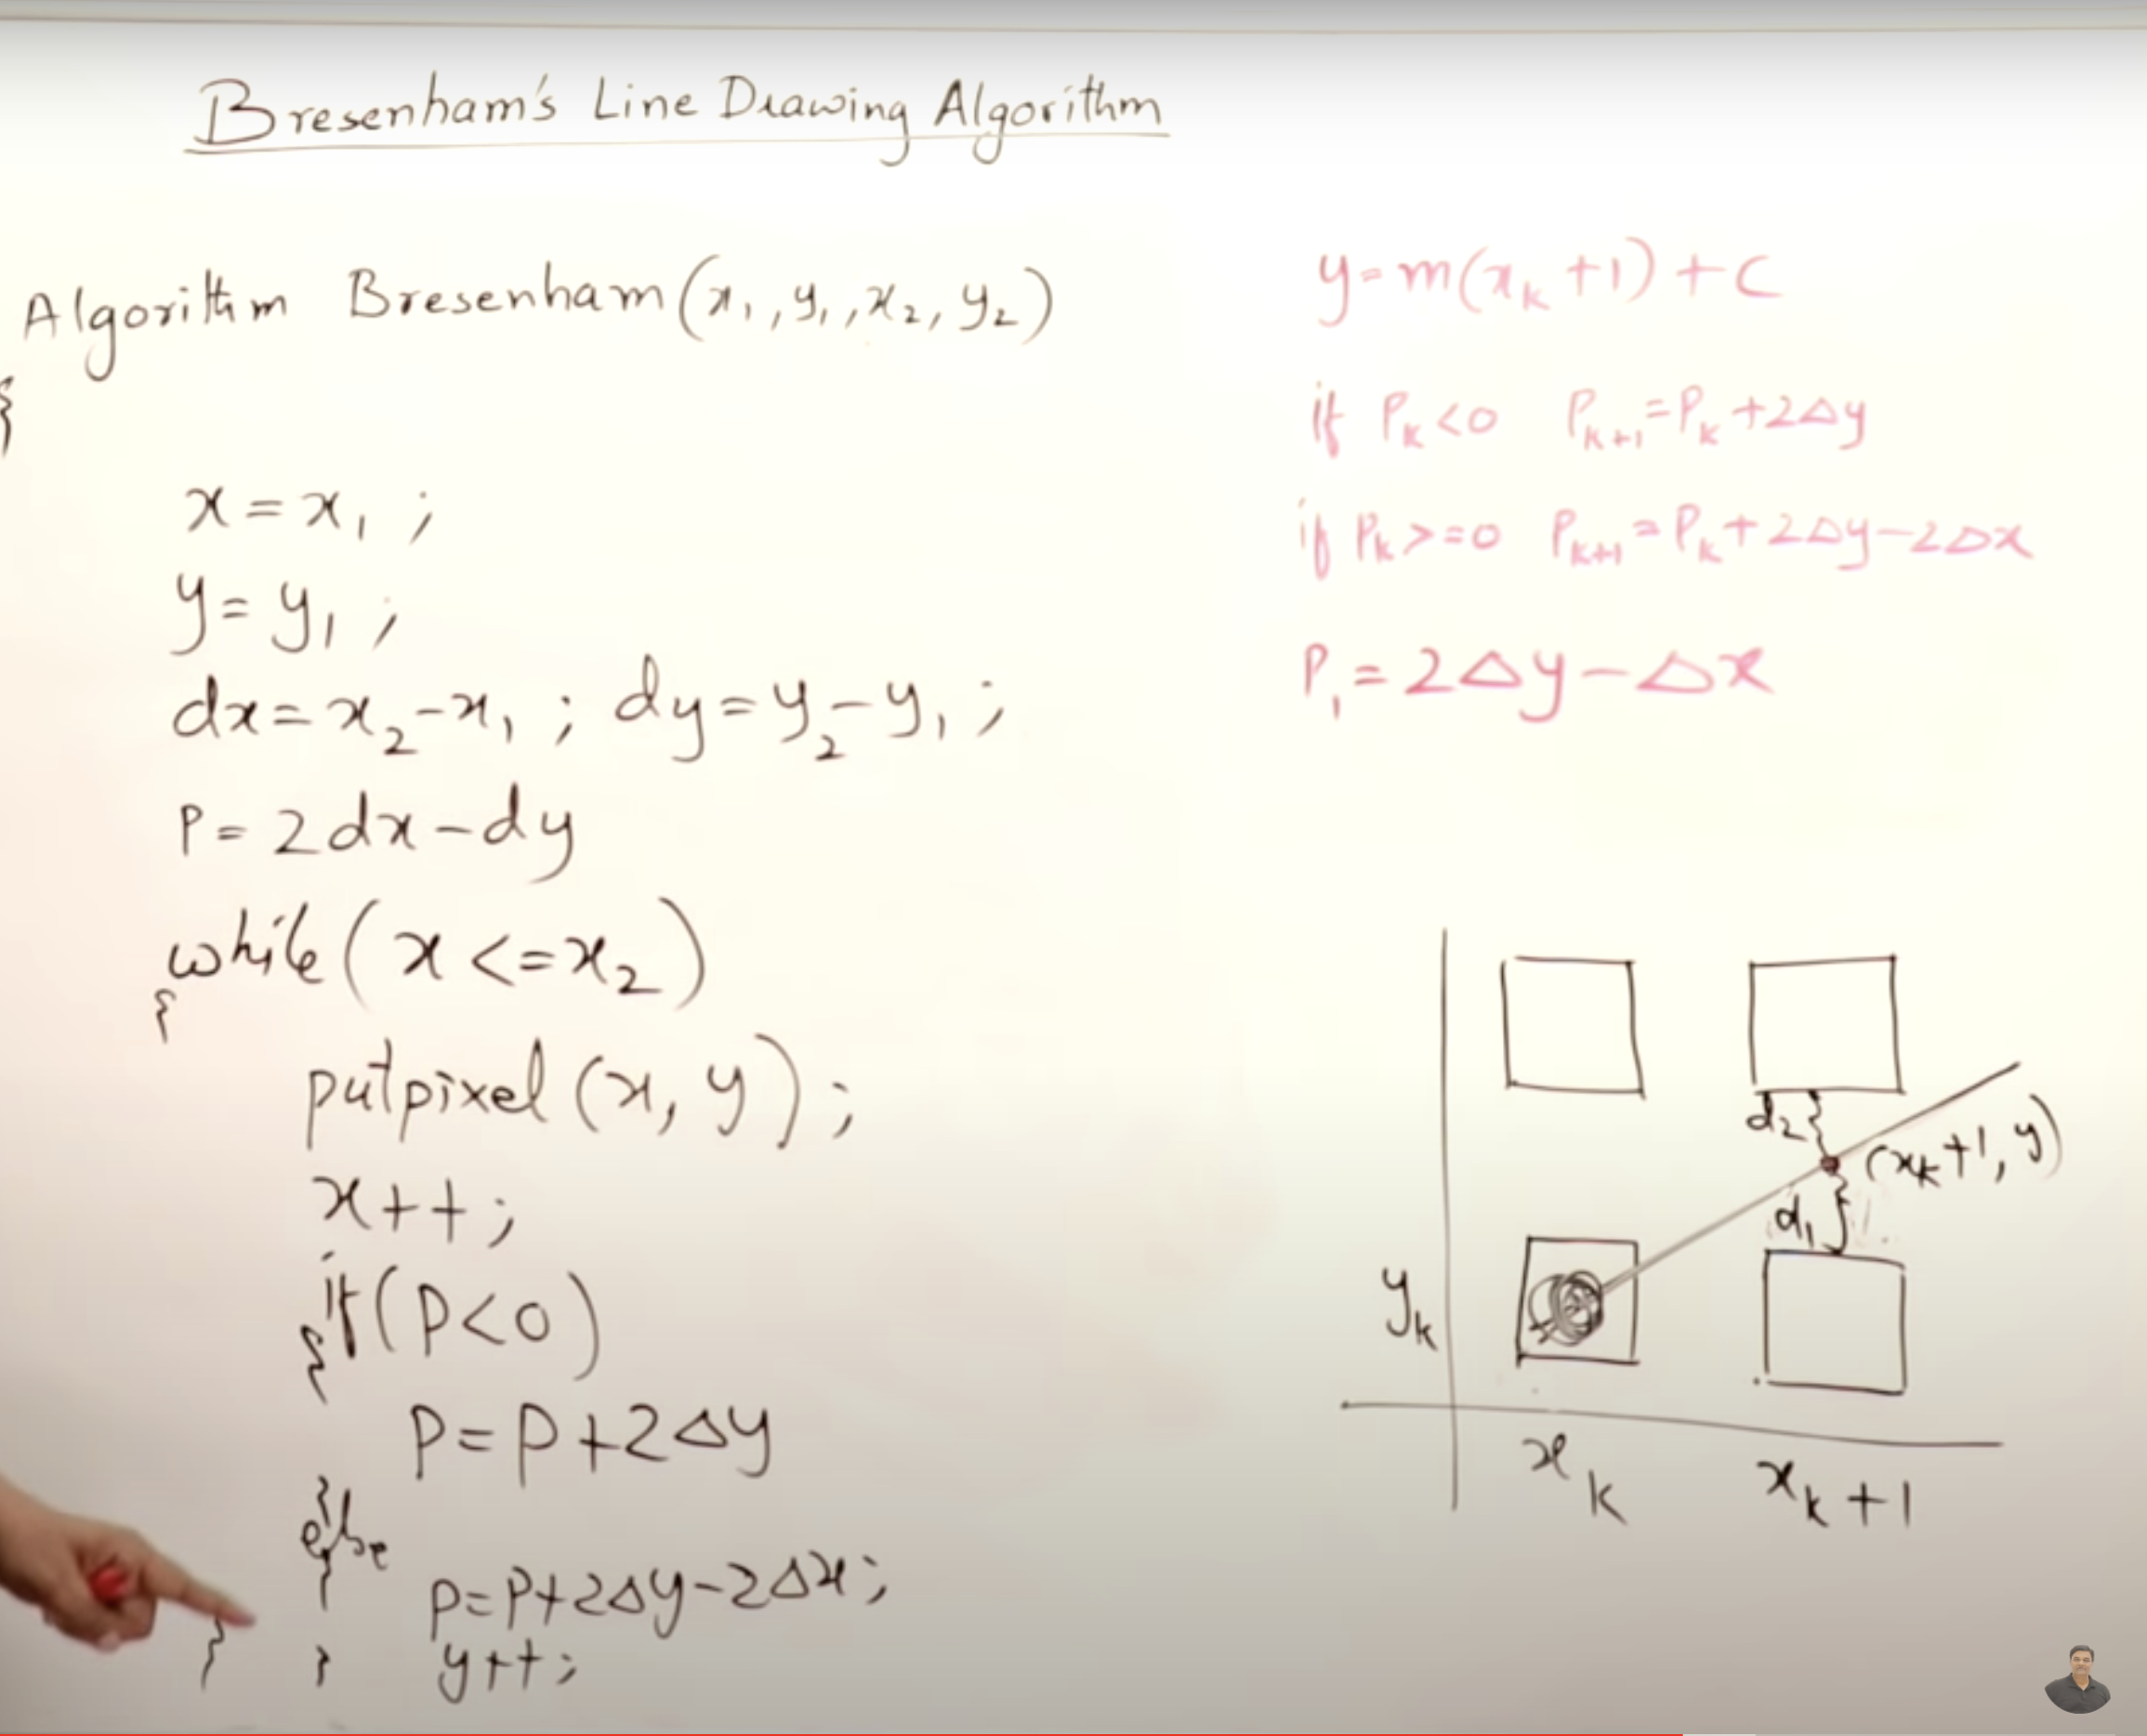 Bresenham's Line Drawing Algorithm
Algorithm Bresenham(x₁, y₁, x₂, y₂)
{
x = x₁ ;
y = y₁ ;
dx = x₂ - x₁ ; dy = y₂ - y₁ ;
P = 2dx - dy
while (x <= x₂)
{
putpixel (x, y) ;
x++ ;
if (P < 0)
{
P = P + 2Δy
}
else
{
P = P + 2Δy - 2Δx ;
y++ ;
}
}
y = m(xₖ + 1) + C
if Pₖ < 0 Pₖ₊₁ = Pₖ + 2Δy
if Pₖ >= 0 Pₖ₊₁ = Pₖ + 2Δy - 2Δx
P₁ = 2Δy - Δx
d₂ }
(xₖ+1, y)
d₁ }
yₖ
xₖ xₖ+1